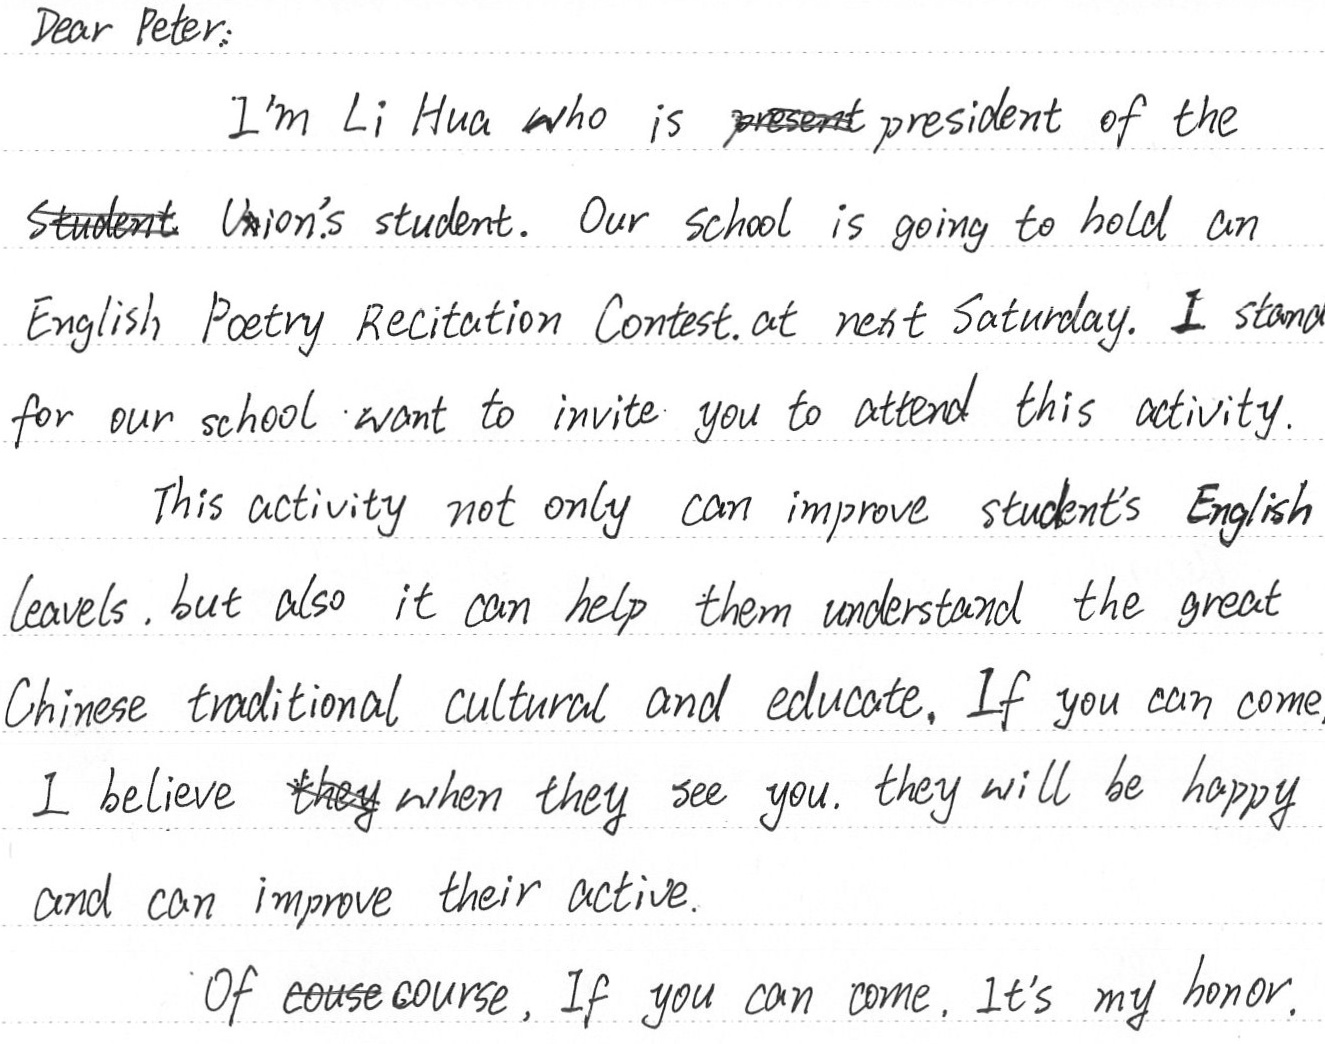 Dear Peter:
I'm Li Hua who is present president of the
Student Union's student. Our school is going to hold an
English Poetry Recitation Contest. at next Saturday. I stand
for our school want to invite you to attend this activity.
This activity not only can improve student's English
leavels. but also it can help them understand the great
Chinese traditional cultural and educate. If you can come,
I believe they when they see you. they will be happy
and can improve their active.
Of couse course, If you can come. It's my honor.